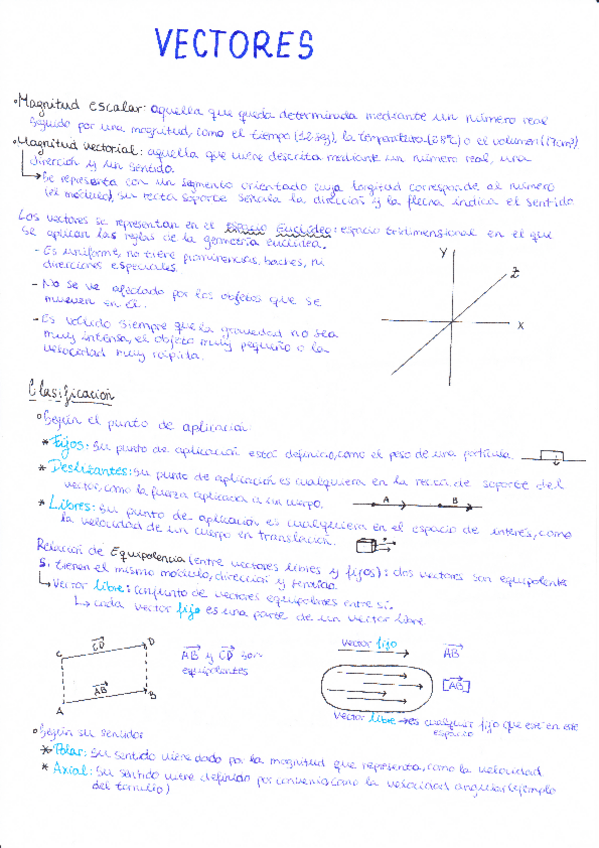 VECTORES
• Magnitud escalar: aquella que queda determinada mediante un número real
seguido por una magnitud, como el tiempo (12 seg), la temperatura (38°C) o el volumen (17cm³)
• Magnitud vectorial: aquella que viene descrita mediante un número real, una
dirección y un sentido.
Se representa con un segmento orientado cuya longitud corresponde al número
(el módulo), su recta soporte señala la dirección y la flecha indica el sentido
Los vectores se representan en el Espacio Euclídeo: espacio tridimensional en el que
se aplican las reglas de la geometría euclídea.
- Es uniforme, no tiene prominencias, baches, ni
direcciones especiales.
- No se ve afectado por los objetos que se
mueven en él.
- Es válido siempre que la gravedad no sea
muy intensa, el objeto muy pequeño o la
velocidad muy rápida.
Y
Z
X
Clasificación
• Según el punto de aplicación
* Fijos: su punto de aplicación está definido, como el peso de una partícula.
* Deslizantes: su punto de aplicación es cualquiera en la recta de soporte del
vector, como la fuerza aplicada a un cuerpo.
A B
* Libres: su punto de aplicación es cualquiera en el espacio de interés, como
la velocidad de un cuerpo en translación.
Relación de Equipolencia (entre vectores libres y fijos): dos vectores son equipolentes
si tienen el mismo módulo, dirección y sentido
Vector libre: conjunto de vectores equipolentes entre sí.
cada vector fijo es una parte de un vector libre
C CD D
A AB B
AB y CD son
equipolentes
vector fijo AB
[AB]
vector libre → es cualquier fijo que esté en este
espacio
• Según su sentido
* Polar: su sentido viene dado por la magnitud que representa, como la velocidad
* Axial: su sentido viene definido por convenio, como la velocidad angular (ejemplo
del tornillo)